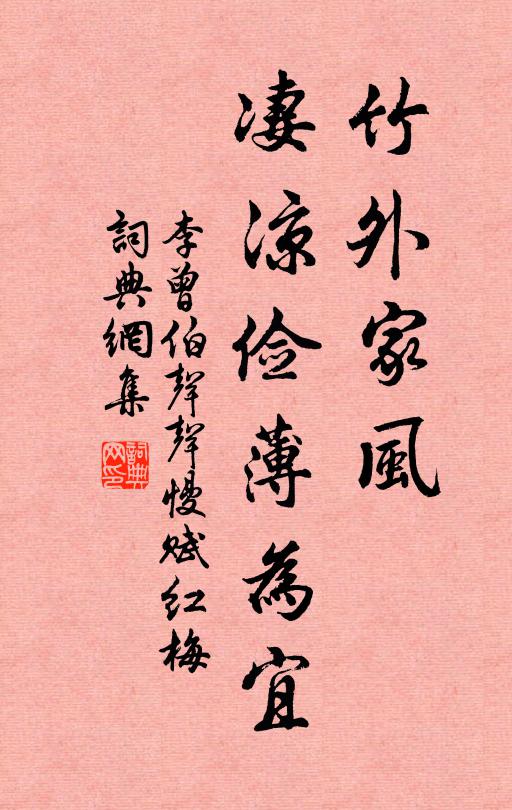 竹外家風
凄凉俭薄為宜
李曾伯聲聲慢賦红梅
詞典網集
詞典網印